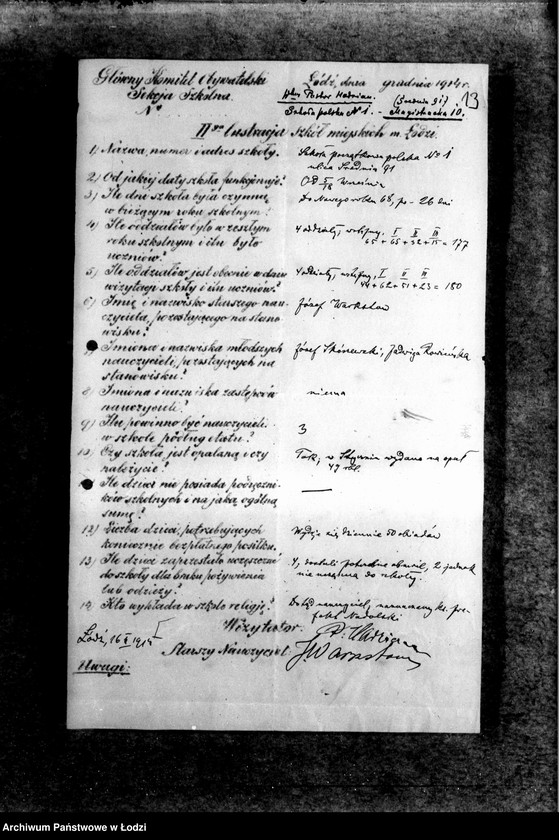 Główny Komitet Obywatelski Łódź, dnia grudnia 1914 r.
Sekcja Szkolna. Pastor Hadrian. (Średnia 91) 13
№ Szkoła polska № 1. - Magistracka 10.
II ga lustracja szkół miejskich m. Łodzi.
1) Nazwa, numer i adres szkoły. Szkoła początkowa polska № 1
ulica Średnia 91
2) Od jakiej daty szkoła funkcjonuje? Od Września
3) Ile dni szkoła była czynną Do Nowego roku 68, po - 26 dni
w bieżącym roku szkolnym?
4) Ile oddziałów było w zeszłym 4 oddziały, wstępny, I II III
roku szkolnym i ilu było 65 + 65 + 32 + 15 = 177
uczniów?
5) Ile oddziałów jest obecnie w dniu 4 oddziały, wstępny, I II III
wizytacji szkoły i ilu uczniów? 44 + 62 + 51 + 23 = 180
6) Imię i nazwisko starszego nau- Józef
czyciela, pozostającego na stano-
wisku?
Imiona i nazwiska młodszych Józef Jadwiga
nauczycieli, pozostających na
stanowisku?
8) Imiona i nazwiska zastępców niema
nauczycieli?
9) Ilu powinno być nauczycieli 3
w szkole podług etatu?
10) Czy szkoła jest opalana i czy Tak; w Styczniu wydano na opał
należycie? 47 rbl.
Ile dzieci nie posiada podręczni- —
ków szkolnych i na jaką ogólną
sumę?
12) Liczba dzieci, potrzebujących Wydaje się dziennie 50 obiadów
koniecznie bezpłatnego posiłku.
13) Ile dzieci zaprzestało uczęszczać 4, dostali potrzebne obuwie, 2 jednak
do szkoły dla braku pożywienia nie uczęszcza do szkoły.
lub odzieży?
14) Kto wykłada w szkole religję? Dotąd nauczyciel, naznaczony ks. pre-
fekt Nadolski
Wizytator: P. Hadrian
Łódź, 16 1915
Starszy Nauczyciel
Uwagi:
Archiwum Państwowe w Łodzi